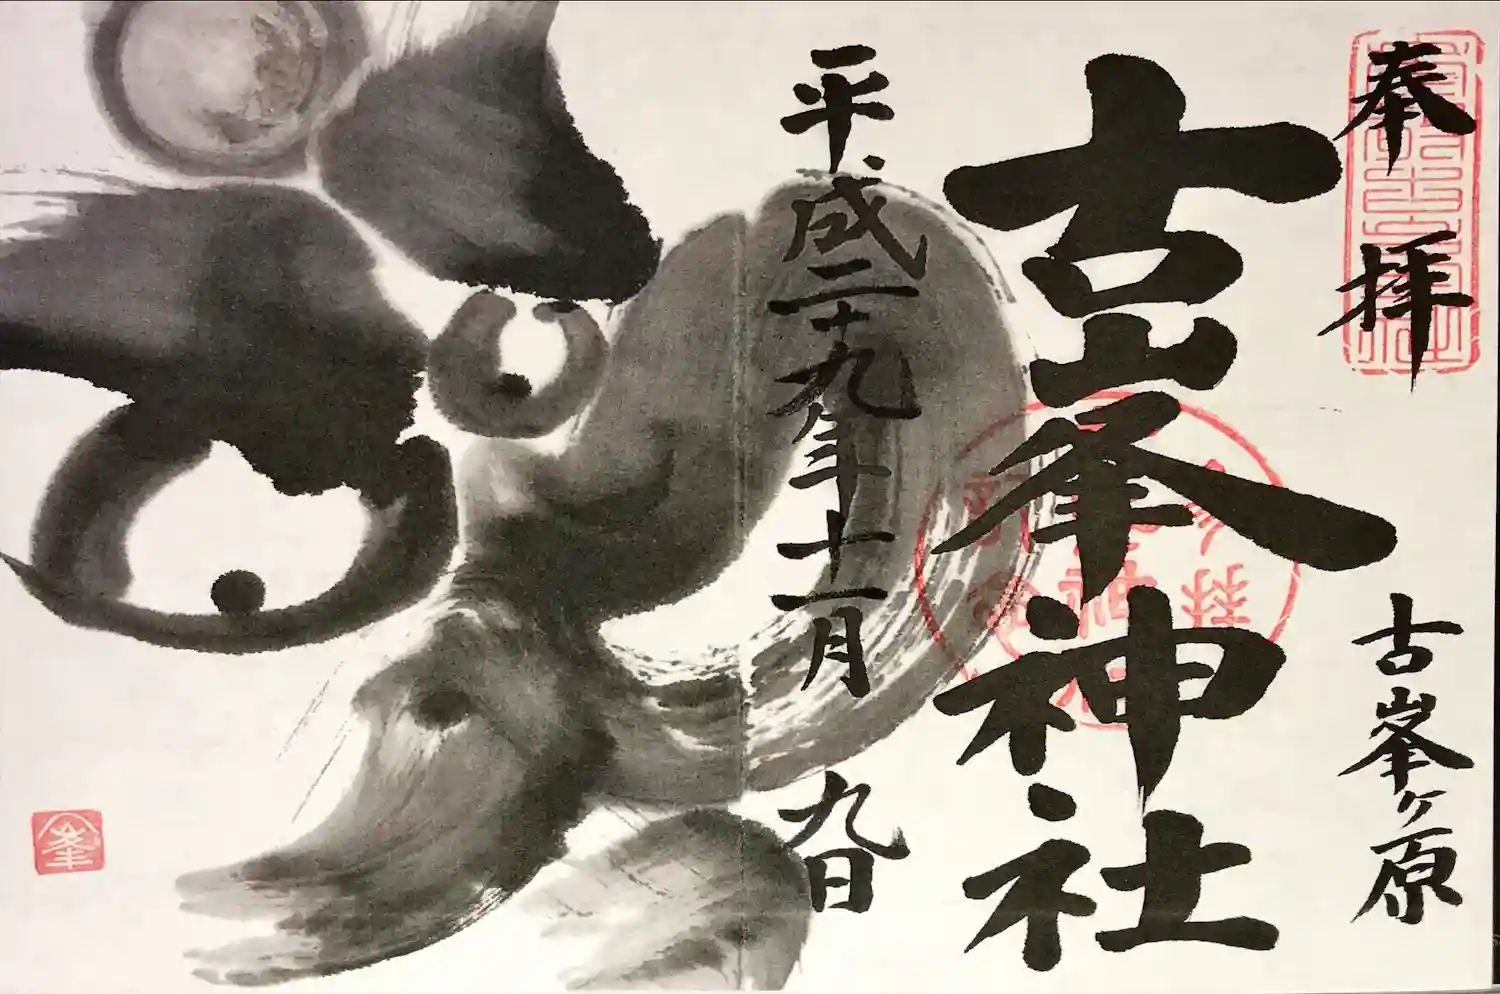 奉拝
古峯ヶ原
古峯神社
平成二十九年十一月九日
峯